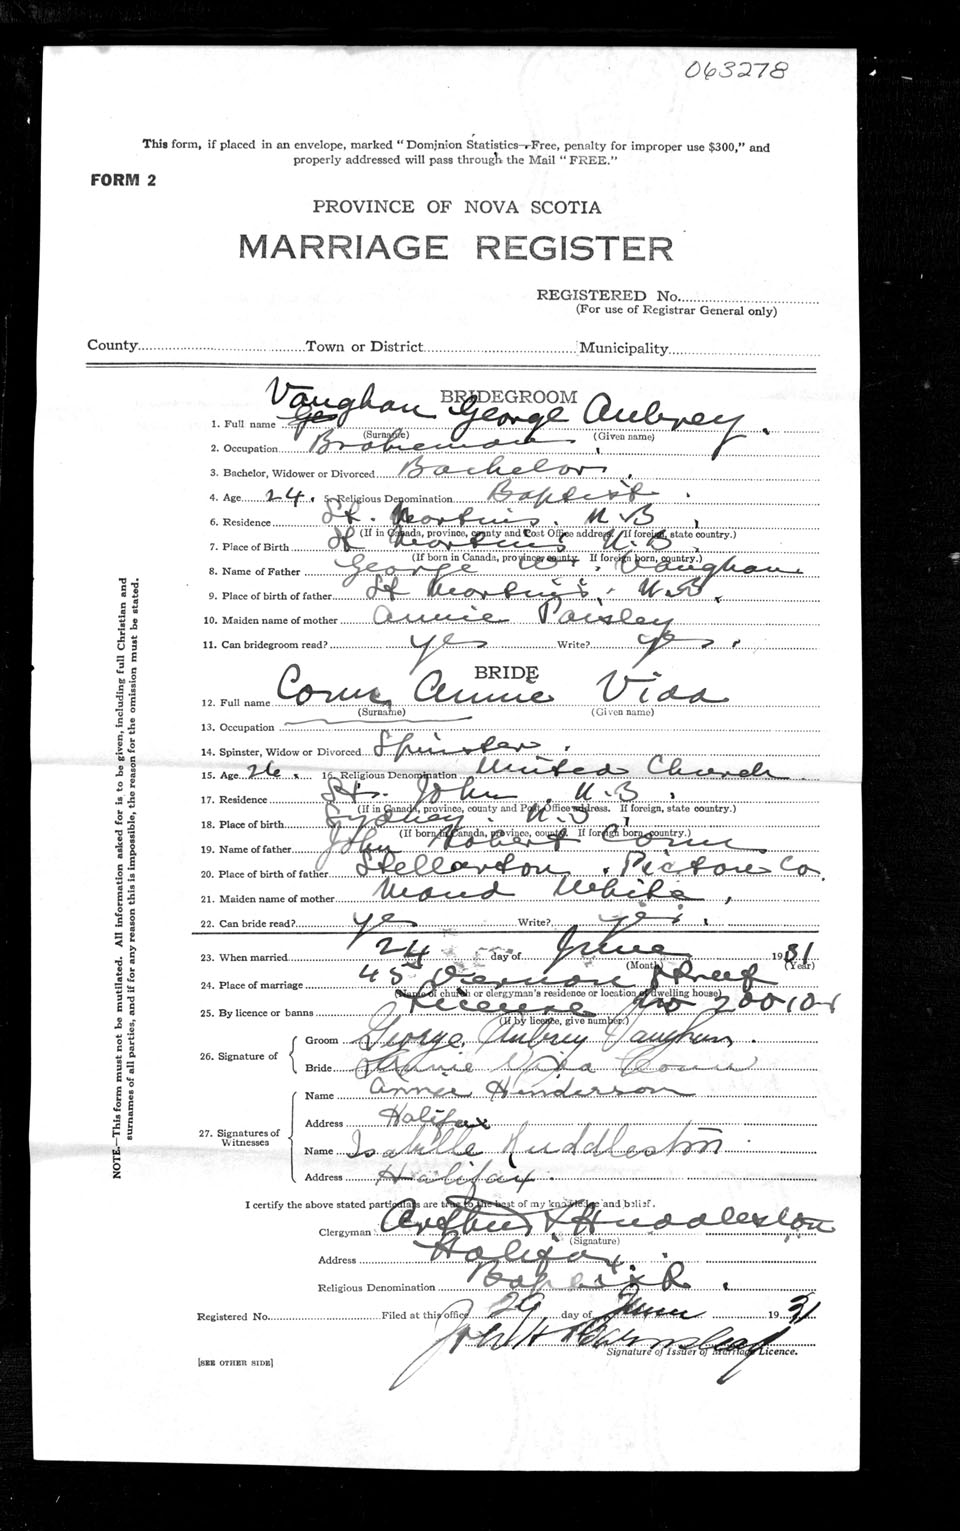 063278
This form, if placed in an envelope, marked "Dominion Statistics—Free, penalty for improper use $300," and
properly addressed will pass through the Mail "FREE."
FORM 2
PROVINCE OF NOVA SCOTIA
MARRIAGE REGISTER
REGISTERED No.
(For use of Registrar General only)
County Town or District Municipality
BRIDEGROOM
1. Full name Vaughan George Aubrey
(Surname) (Given name)
2. Occupation Brakeman
3. Bachelor, Widower or Divorced Bachelor
4. Age 24 5. Religious Denomination Baptist
6. Residence St. Martins. N.B
(If in Canada, province, county and Post Office address. If foreign, state country.)
7. Place of Birth St Martins N.B
(If born in Canada, province, county. If foreign born, country.)
8. Name of Father George W. Vaughan
9. Place of birth of father St Martins. N.B.
10. Maiden name of mother Annie Paisley
11. Can bridegroom read? yes Write? yes
BRIDE
12. Full name Annie Vida
(Surname) (Given name)
13. Occupation
14. Spinster, Widow or Divorced Spinster
15. Age 26 16. Religious Denomination United Church
17. Residence St. John, N.B
(If in Canada, province, county and Post Office address. If foreign, state country.)
18. Place of birth Sydney. N.S
(If born in Canada, province, county. If foreign born, country.)
19. Name of father John Robert
20. Place of birth of father Stellarton, Pictou Co.
21. Maiden name of mother Maud White
22. Can bride read? yes Write? yes
23. When married 24 day of June 1931
(Month) (Year)
24. Place of marriage 45 Vernon Street
(Name of church or clergyman's residence or location of dwelling house)
25. By licence or banns Licence No
(If by licence, give number.)
26. Signature of Groom George Aubrey Vaughan
Bride Annie Vida
27. Signatures of Witnesses
Name Anna Henderson
Address Halifax
Name Isabelle Huddleston
Address Halifax
I certify the above stated particulars are true to the best of my knowledge and belief.
Clergyman Arthur Huddleston
(Signature)
Address Halifax
Religious Denomination Baptist
Registered No. Filed at this office 29 day of June 1931
John H
Signature of Issuer of Marriage Licence.
[SEE OTHER SIDE]
NOTE.—This form must not be mutilated. All information asked for is to be given, including full Christian and
surnames of all parties, and if for any reason this is impossible, the reason for the omission must be stated.